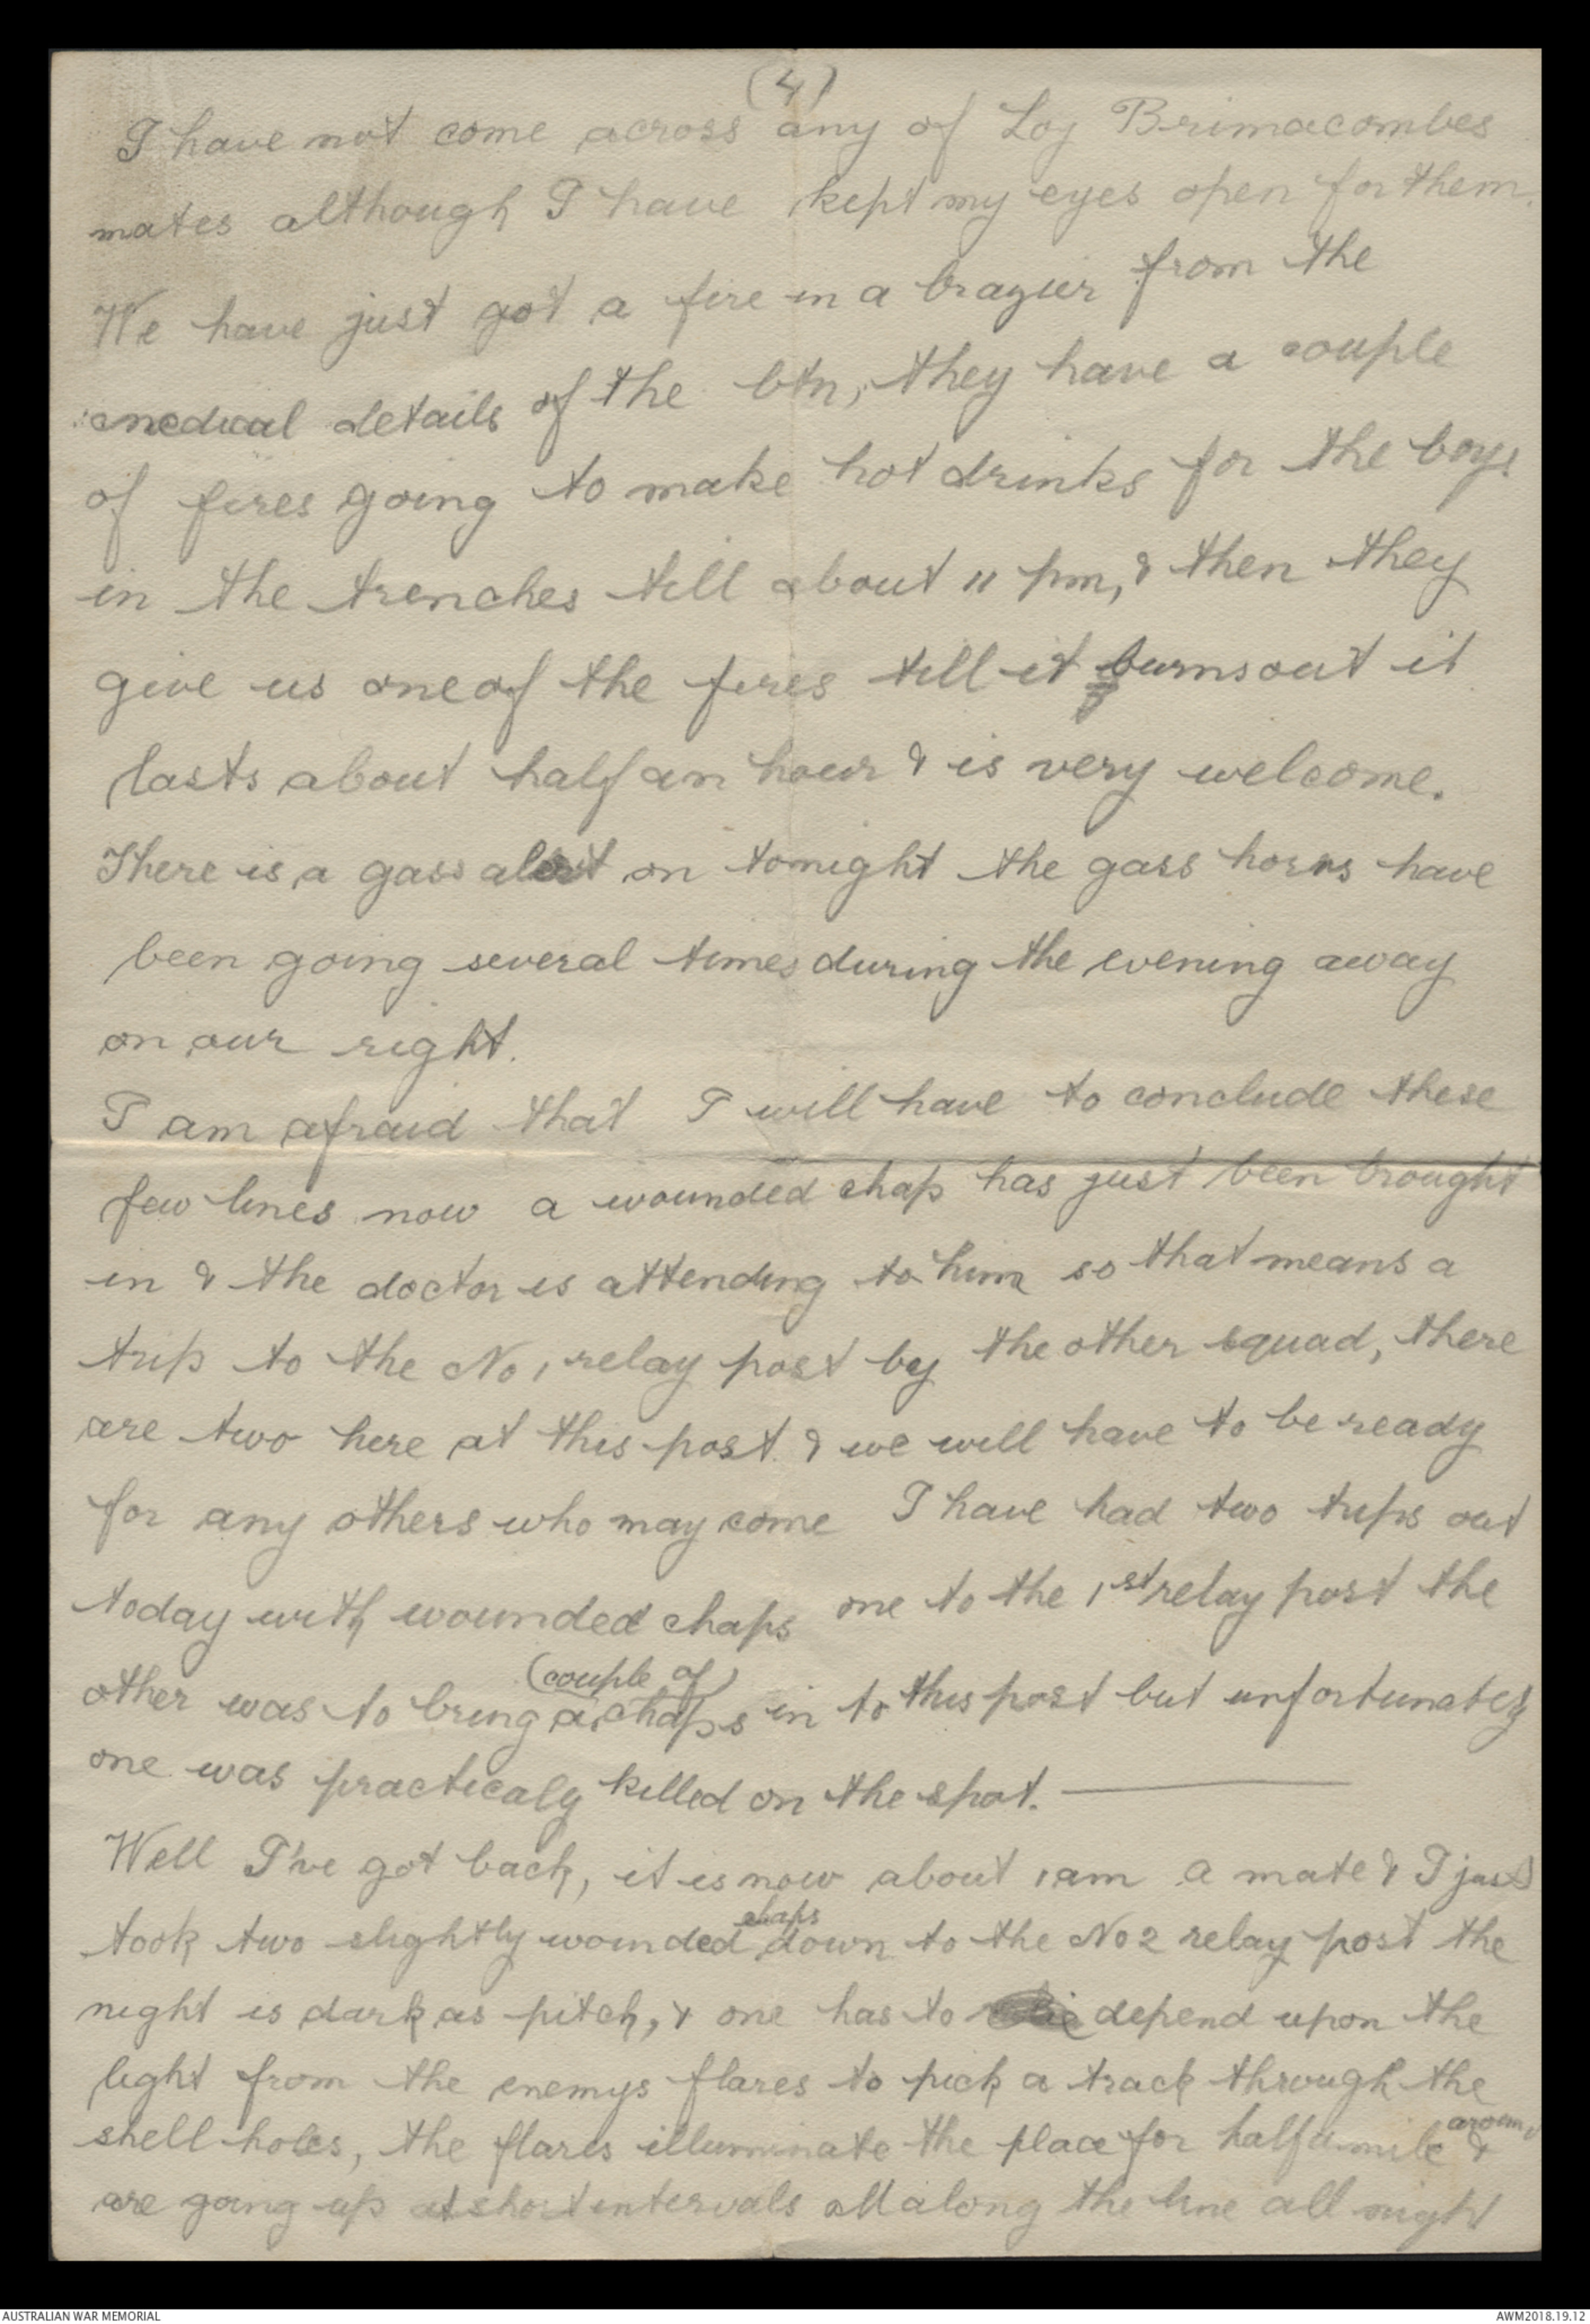 (4)
I have not come across any of Loy Brimacombes
mates although I have kept my eyes open for them.
We have just got a fire in a brazier from the
medical details of the btn, they have a couple
of fires going to make hot drinks for the boys
in the trenches till about 11 pm, & then they
give us one of the fires till it burns out it
lasts about half an hour & is very welcome.
There is a gass alert on tonight the gass horns have
been going several times during the evening away
on our right.
I am afraid that I will have to conclude these
few lines now a wounded chap has just been brought
in & the doctor is attending to him so that means a
trip to the No 1 relay post by the other squad, there
are two here at this post & we will have to be ready
for any others who may come I have had two trips out
today with wounded chaps one to the 1st relay post the
(couple of)
other was to bring a chaps in to this post but unfortunately
one was practicaly killed on the spot. —
Well I've got back, it is now about 1 am a mate & I just
chaps
took two slightly wounded down to the No 2 relay post the
night is dark as pitch, & one has to depend upon the
light from the enemys flares to pick a track through the
shell holes, the flares illuminate the place for half a mile around &
are going up at short intervals all along the line all night
AUSTRALIAN WAR MEMORIAL
AWM2018.19.12